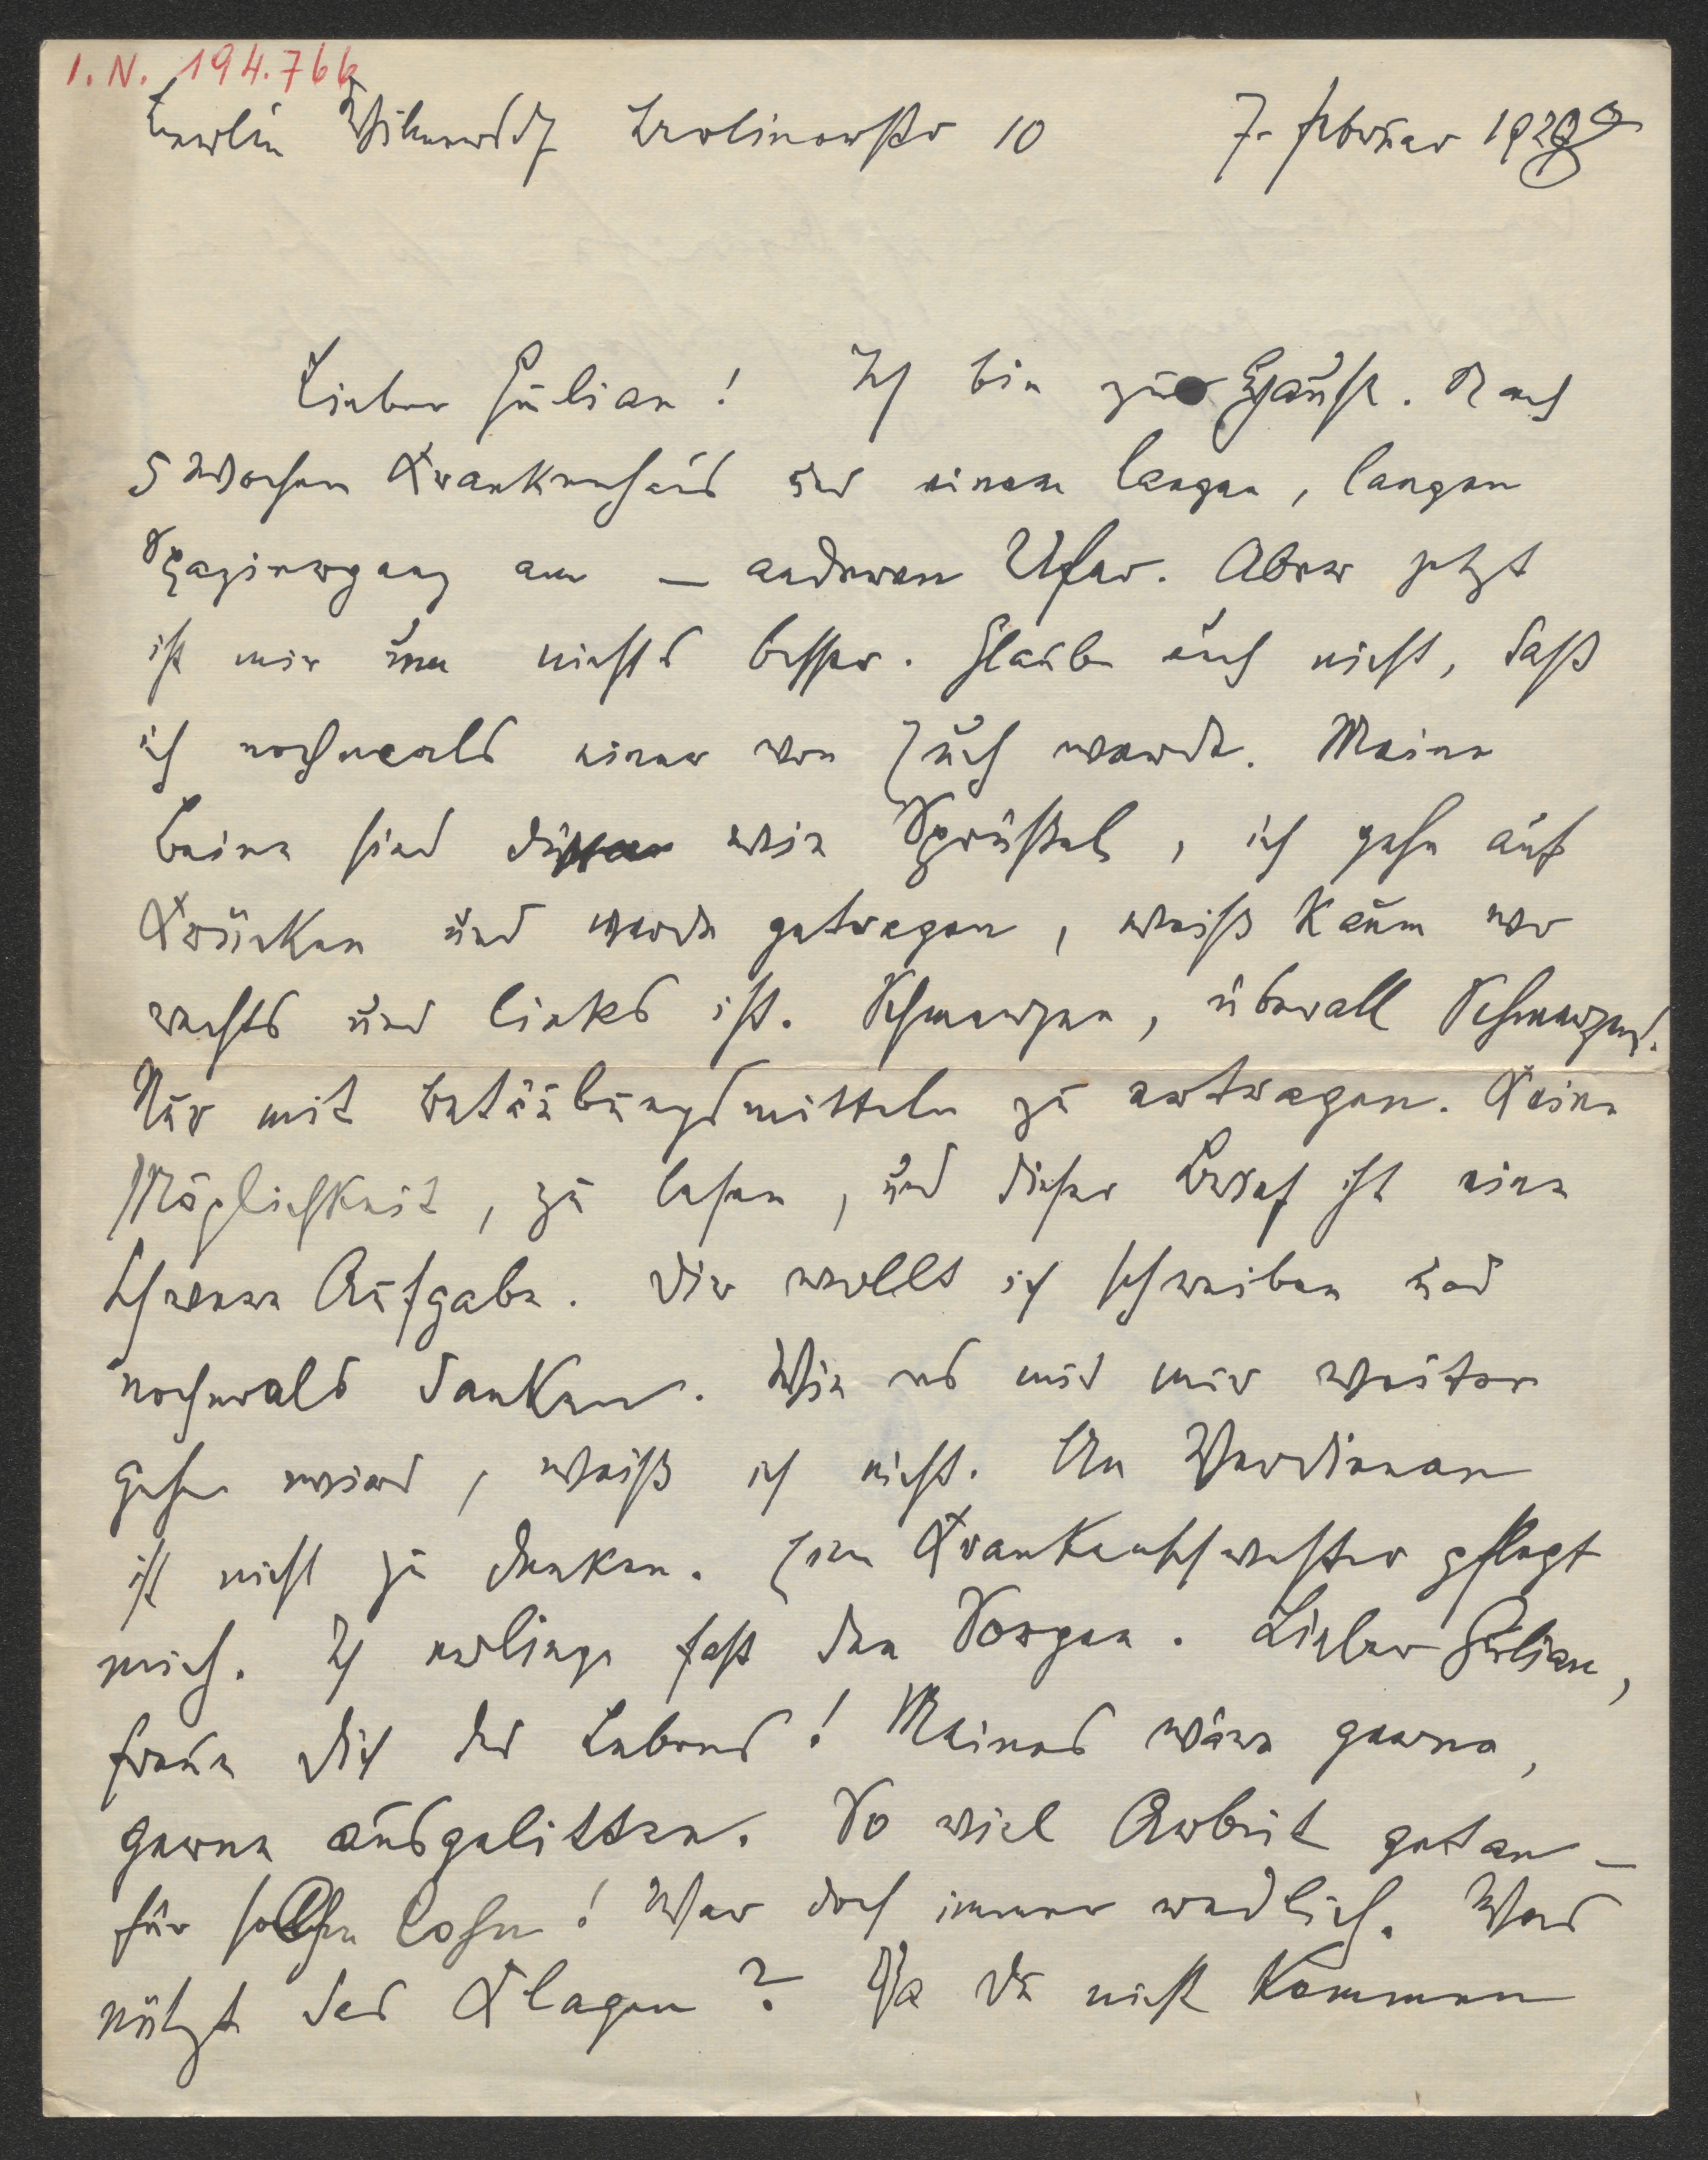 I.N. 194.766
Berlin Wilmersdf Berlinerstr 10 7. Februar 1929
Lieber Julian! Ich bin zu Hause. Nach
5 Wochen Krankenhaus und einem langen, langen
Spaziergang am – anderen Ufer. Aber jetzt
ist mir um nichts besser. Glaube auch nicht, daß
ich nochmals einer von Euch werde. Meine
Beine sind wie Sprüßel, ich gehe auf
Krücken und werde getragen, weiß kaum wo
rechts und links ist. Schmerzen, überall Schmerzen.
Nur mit Betäubungsmitteln zu ertragen. Keine
Möglichkeit, zu lesen, und dieser Brief ist eine
schwere Aufgabe. Dir wollt ich schreiben und
nochmals danken. Wie es mit mir weiter
gehen wird, weiß ich nicht. An Verdienen
ist nicht zu denken. Eine Krankenschwester pflegt
mich. Ich erliege fast den Sorgen. Lieber Julian,
freue Dich des Lebens! Meines wäre gerne,
gerne ausgelitten. So viel Arbeit getan –
für solchen Lohn! War doch immer redlich. Was
nützt das Klagen? Ja Du nicht kommen